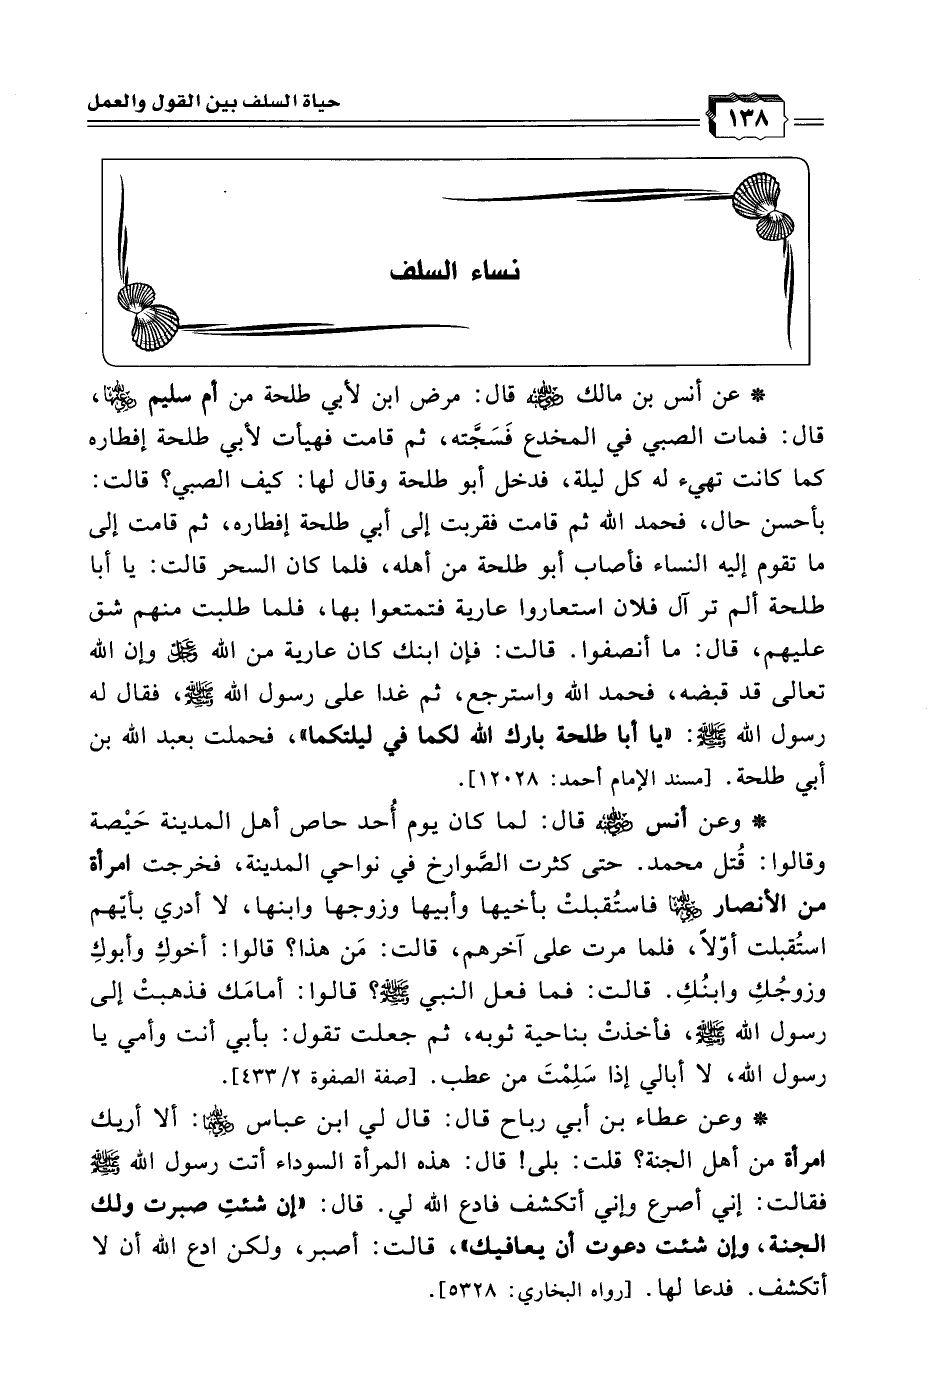 حياة السلف بين القول والعمل
١٣٨
نساء السلف
* عن أنس بن مالك رضي الله عنه قال: مرض ابن لأبي طلحة من أم سليم رضي الله عنها،
قال: فمات الصبي في المخدع فَسَجَّته، ثم قامت فهيأت لأبي طلحة إفطاره
كما كانت تهيء له كل ليلة، فدخل أبو طلحة وقال لها: كيف الصبي؟ قالت:
بأحسن حال، فحمد الله ثم قامت فقربت إلى أبي طلحة إفطاره، ثم قامت إلى
ما تقوم إليه النساء فأصاب أبو طلحة من أهله، فلما كان السحر قالت: يا أبا
طلحة ألم تر آل فلان استعاروا عارية فتمتعوا بها، فلما طلبت منهم شق
عليهم، قال: ما أنصفوا. قالت: فإن ابنك كان عارية من الله عز وجل وإن الله
تعالى قد قبضه، فحمد الله واسترجع، ثم غدا على رسول الله ﷺ، فقال له
رسول الله ﷺ: «يا أبا طلحة بارك الله لكما في ليلتكما»، فحملت بعبد الله بن
أبي طلحة. [مسند الإمام أحمد: ١٢٠٢٨].
* وعن أنس رضي الله عنه قال: لما كان يوم أُحد حاص أهل المدينة حَيْصة
وقالوا: قُتل محمد. حتى كثرت الصَّوارخ في نواحي المدينة، فخرجت امرأة
من الأنصار رضي الله عنها فاستُقبلتْ بأخيها وأبيها وزوجها وابنها، لا أدري بأيّهم
استُقبلت أوّلاً، فلما مرت على آخرهم، قالت: مَن هذا؟ قالوا: أخوكِ وأبوكِ
وزوجُكِ وابنُكِ. قالت: فما فعل النبي ﷺ؟ قالوا: أمامَك فذهبتْ إلى
رسول الله ﷺ، فأخذتْ بناحية ثوبه، ثم جعلت تقول: بأبي أنت وأمي يا
رسول الله، لا أبالي إذا سَلِمْتَ من عطب. [صفة الصفوة ٢/ ٤٣٣].
* وعن عطاء بن أبي رباح قال: قال لي ابن عباس رضي الله عنهما: ألا أريك
امرأة من أهل الجنة؟ قلت: بلى! قال: هذه المرأة السوداء أتت رسول الله ﷺ
فقالت: إني أصرع وإني أتكشف فادع الله لي. قال: «إن شئتِ صبرت ولك
الجنة، وإن شئت دعوت أن يعافيك»، قالت: أصبر، ولكن ادع الله أن لا
أتكشف. فدعا لها. [رواه البخاري: ٥٣٢٨].